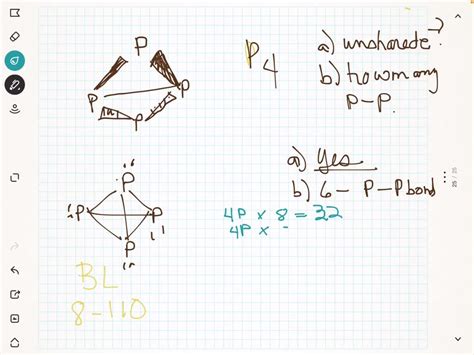 P
P P
P
P4
a) unshared e⁻?
b) how many
P-P.
P
P P
P
a) yes
b) 6 - P-P bond
4P x 8 = 32
4P x -
BL
8-110
25 / 25